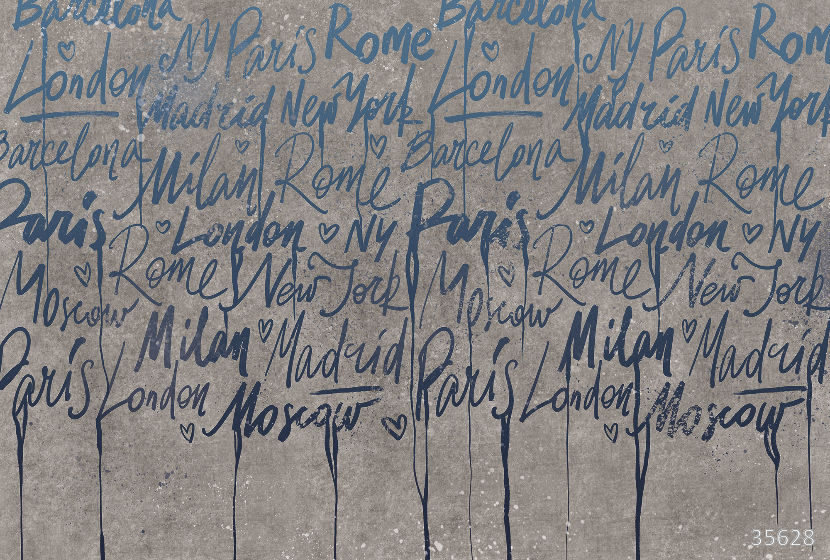 Barcelona Barcelona
NY Paris Rome NY Paris Rom
London London
Madrid New York Madrid New York
Barcelona Milan Rome Barcelona Milan Rome
Paris London NY Paris London NY
Moscow Rome New York Moscow Rome New York
Milan Madrid Milan Madrid
Paris London Moscow Paris London Moscow
35628